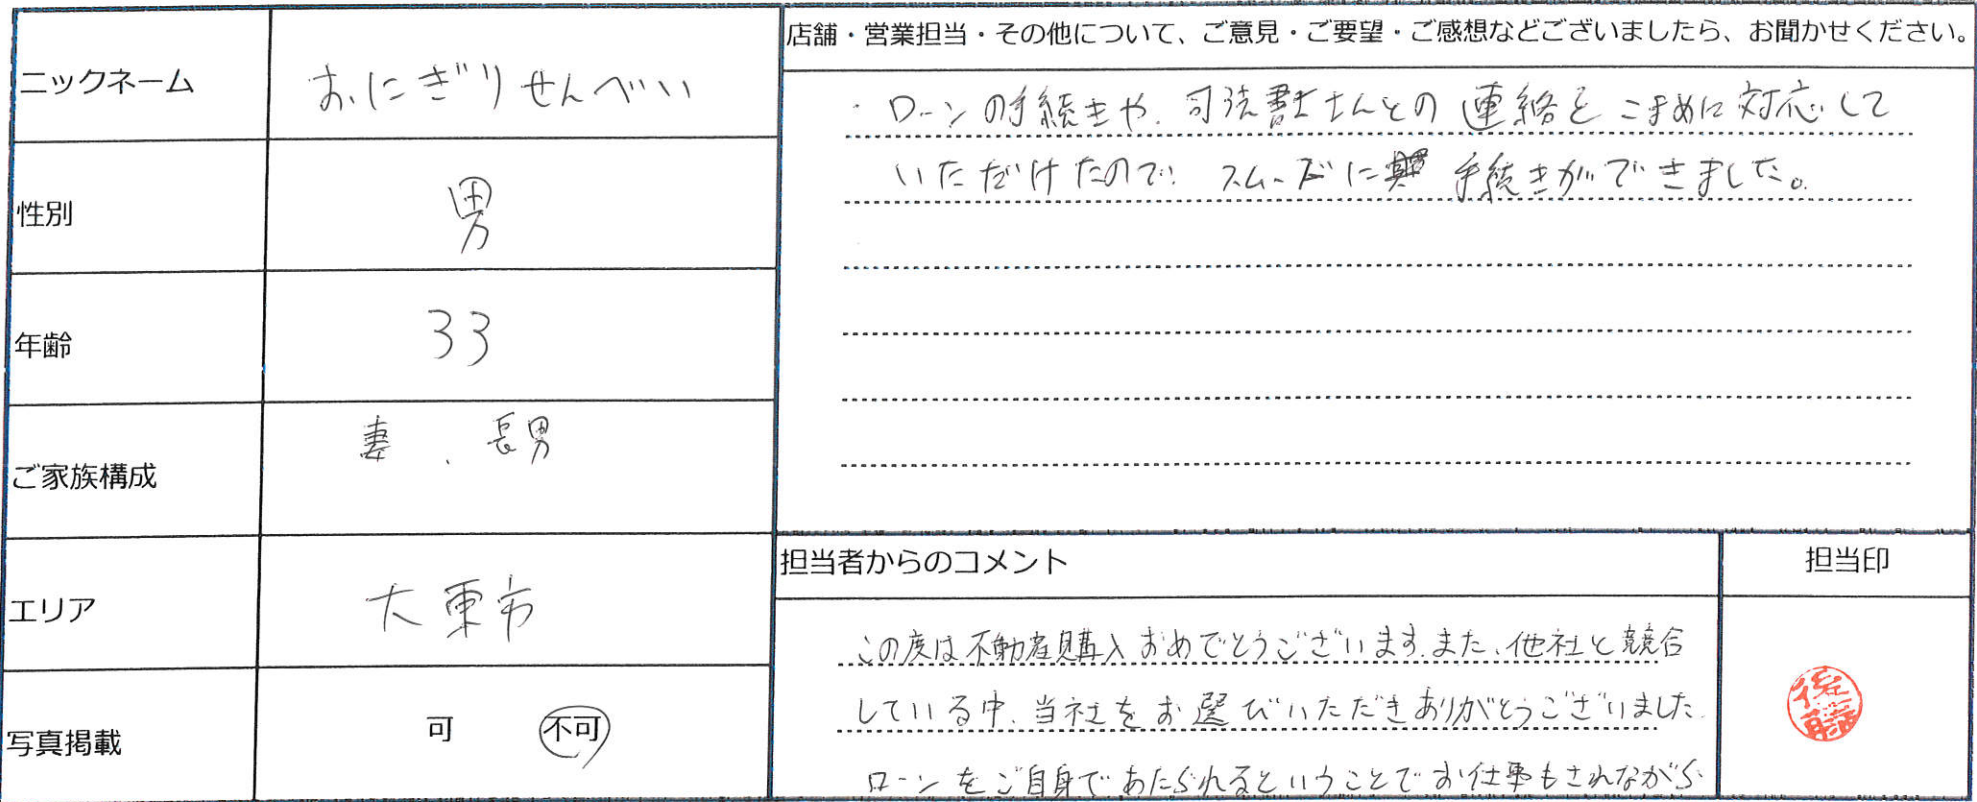 ニックネーム
おにぎりせんべい
性別
男
年齢
33
ご家族構成
妻、長男
エリア
大東市
写真掲載
可 不可
店舗・営業担当・その他について、ご意見・ご要望・ご感想などございましたら、お聞かせください。
・ローンの手続きや、司法書士さんとの連絡をこまめに対応して
いただけたので、スムーズに 手続きができました。
担当者からのコメント
この度は不動産購入おめでとうございます。また、他社と競合
している中、当社をお選びいただきありがとうございました。
ローンをご自身であたられるということでお仕事もされながら
担当印
後藤